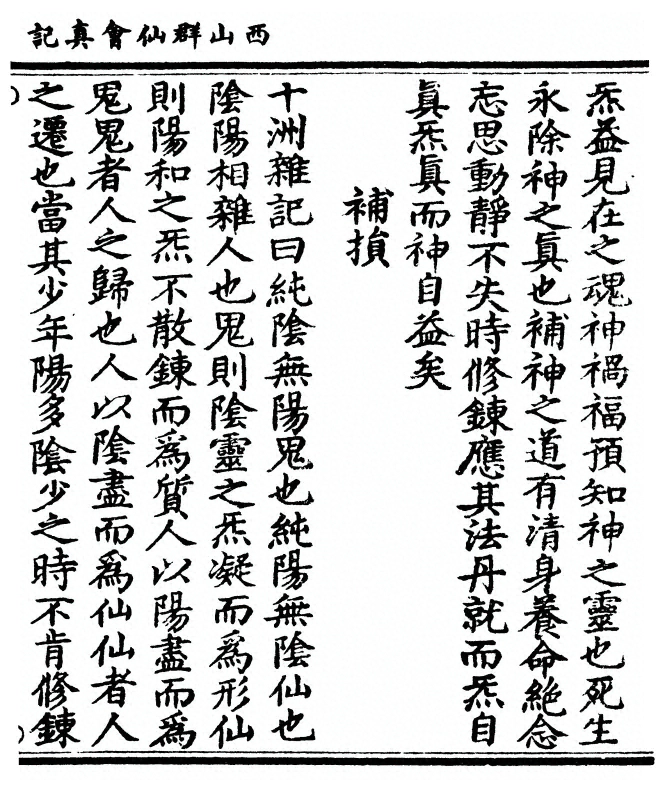 西山群仙會真記
炁益見在之魂神禍福預知神之靈也死生
永除神之眞也補神之道有清身養命絶念
忘思動靜不失時修鍊應其法丹就而炁自
眞炁眞而神自益矣
補損
十洲雜記曰純陰無陽鬼也純陽無陰仙也
陰陽相雜人也鬼則陰靈之炁凝而爲形仙
則陽和之炁不散鍊而爲質人以陽盡而爲
鬼鬼者人之歸也人以陰盡而爲仙仙者人
之遷也當其少年陽多陰少之時不肯修鍊